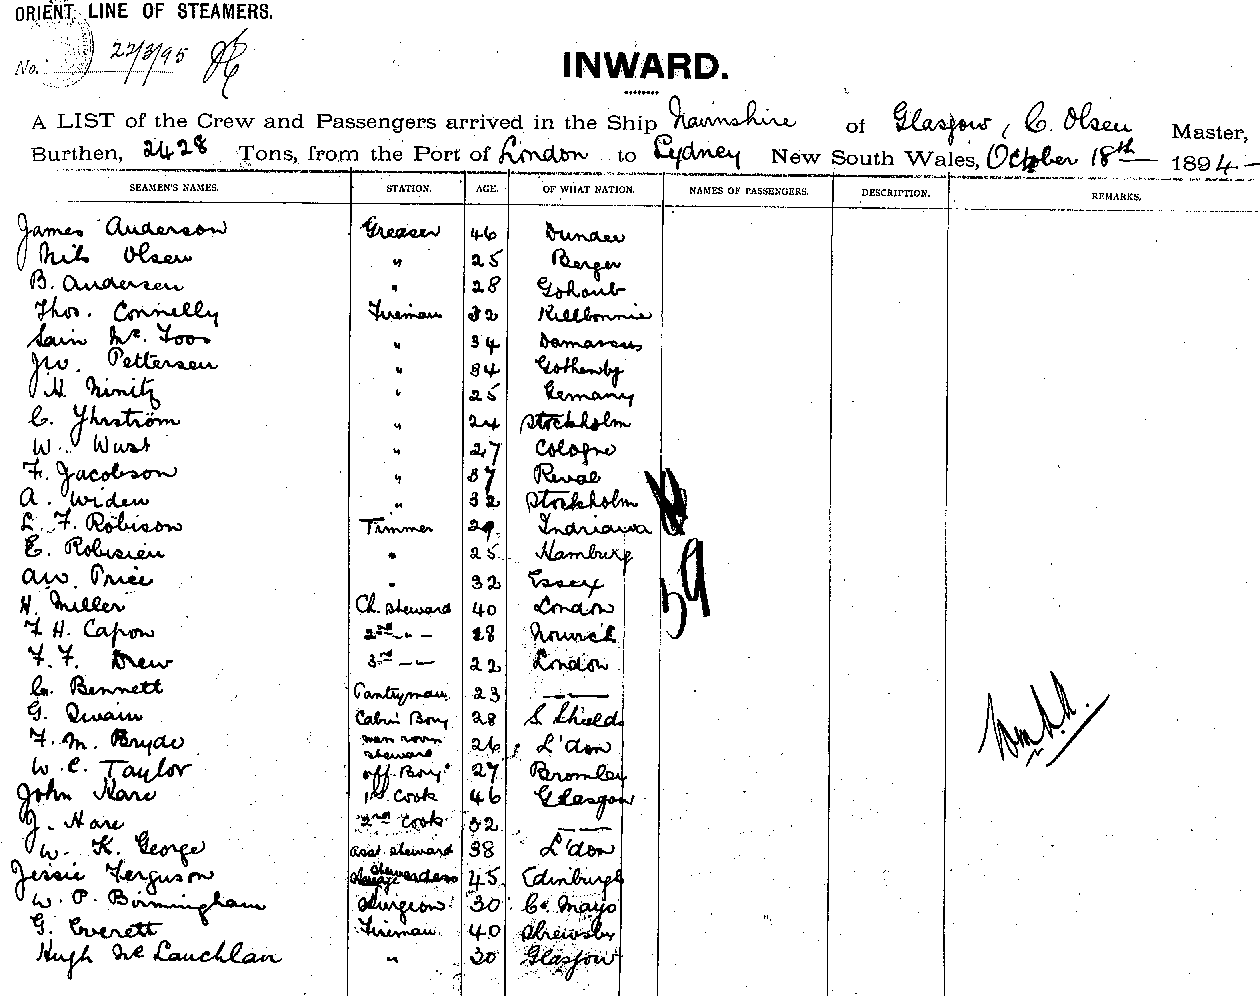 ORIENT LINE OF STEAMERS.
No. 22/3/95
INWARD.
A LIST of the Crew and Passengers arrived in the Ship Nairnshire of Glasgow, C. Olsen Master,
Burthen, 2428 Tons, from the Port of London to Sydney New South Wales, October 18th 1894
SEAMEN'S NAMES. STATION. AGE. OF WHAT NATION. NAMES OF PASSENGERS. DESCRIPTION. REMARKS.
James Anderson Greaser 46 Dundee
Nils Olsen " 25 Bergen
B. Andersen " 28
Thos. Connelly Fireman 32 Killbonnie
" 34 Damarcus
Jw. Pettersen " 34 Gothenbg
H. Nimitz " 25 Germany
C. Yhrström " 24 Stockholm
W. Wust " 27 Cologne
F. Jacobson " 37 Reval
A. Widen " 32 Stockholm
L. F. Robison Trimmer 29
E. Robisien " 25 Hamburg
AW. Price " 32 Essex
H. Miller Ch. Steward 40 London
F H. Capon 2nd - " - 28 Norwich
F. F. Drew 3rd - - 22 London
Bennett Pantryman 23 —
G. Swain Cabin Boy 28 S. Shields
F. M. Bryde steward 26 L'don
W. C. Taylor off. Boy 27 Bromley
John Hare 1st Cook 46 Glasgow
J. Hare 2nd Cook 32 —
W. K. George asst steward 38 L'don
Jessie Ferguson Stewardess 45 Edinburgh
W. P. Birmingham Surgeon 30 Co Mayo
G. Everett Fireman 40 Shrewsby
Hugh Mc Lauchlan " 30 Glasgow
59